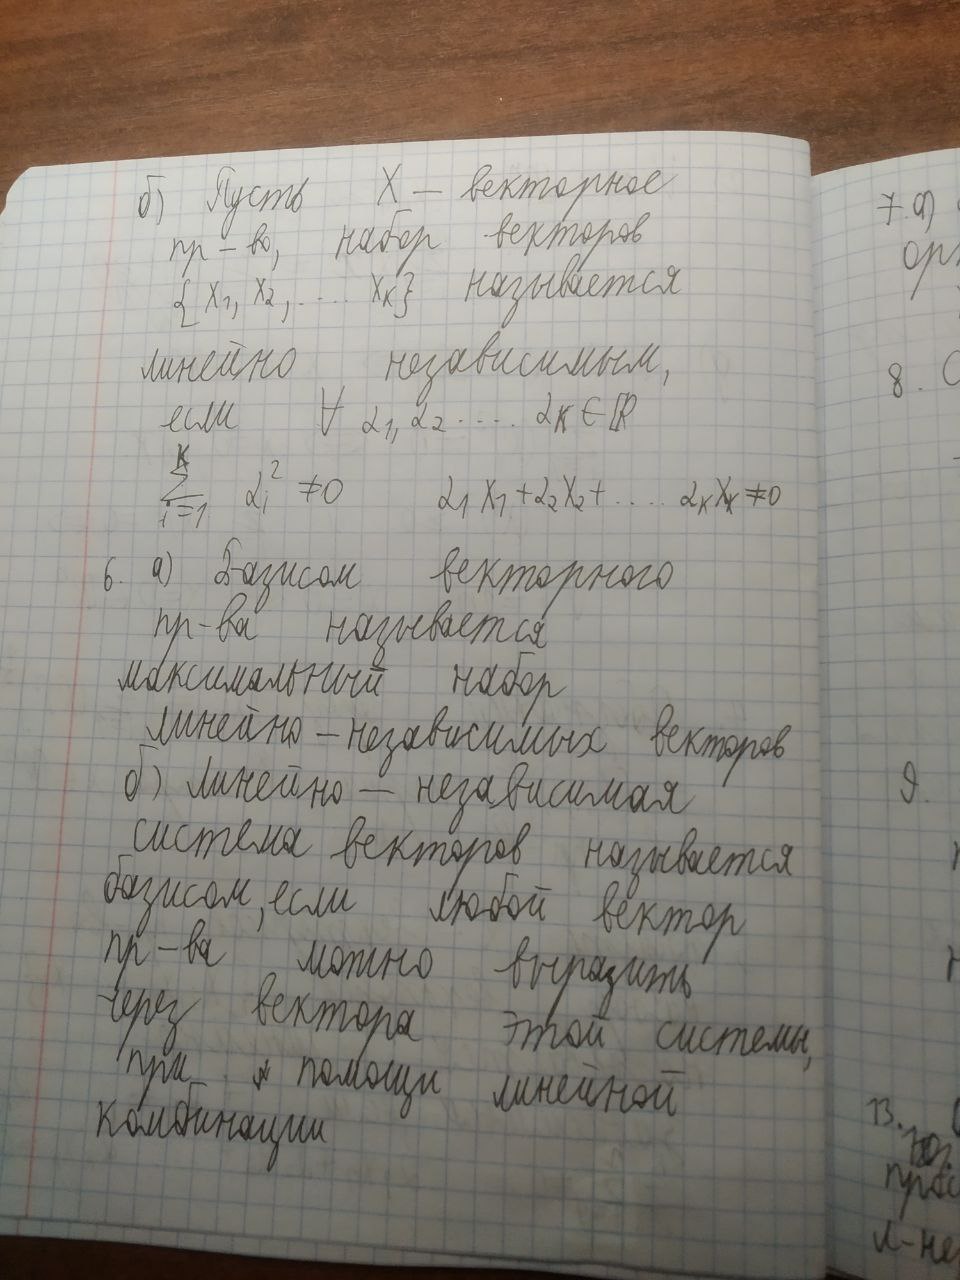 б) Пусть X — векторное
пр-во, набор векторов
{x₁, x₂, .... xₖ} называется
линейно независимым,
если ∀ α₁, α₂ .... αₖ ∈ ℝ
∑ᵢ₌₁ᵏ αᵢ² ≠ 0 α₁x₁ + α₂x₂ + .... αₖxₖ ≠ 0
6. а) Базисом векторного
пр-ва называется
максимальный набор
линейно-независимых векторов
б) линейно — независимая
система векторов называется
базисом, если любой вектор
пр-ва можно выразить
через вектора этой системы,
при помощи линейной
комбинации
7. а)
орт
8. С
9.
13.
л-не